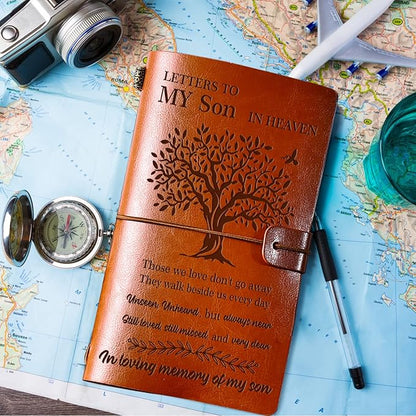 LETTERS TO
MY Son IN HEAVEN
Those we love don't go away
They walk beside us every day
Unseen Unheard, but always near
Still loved still missed and very dear
In loving memory of my son